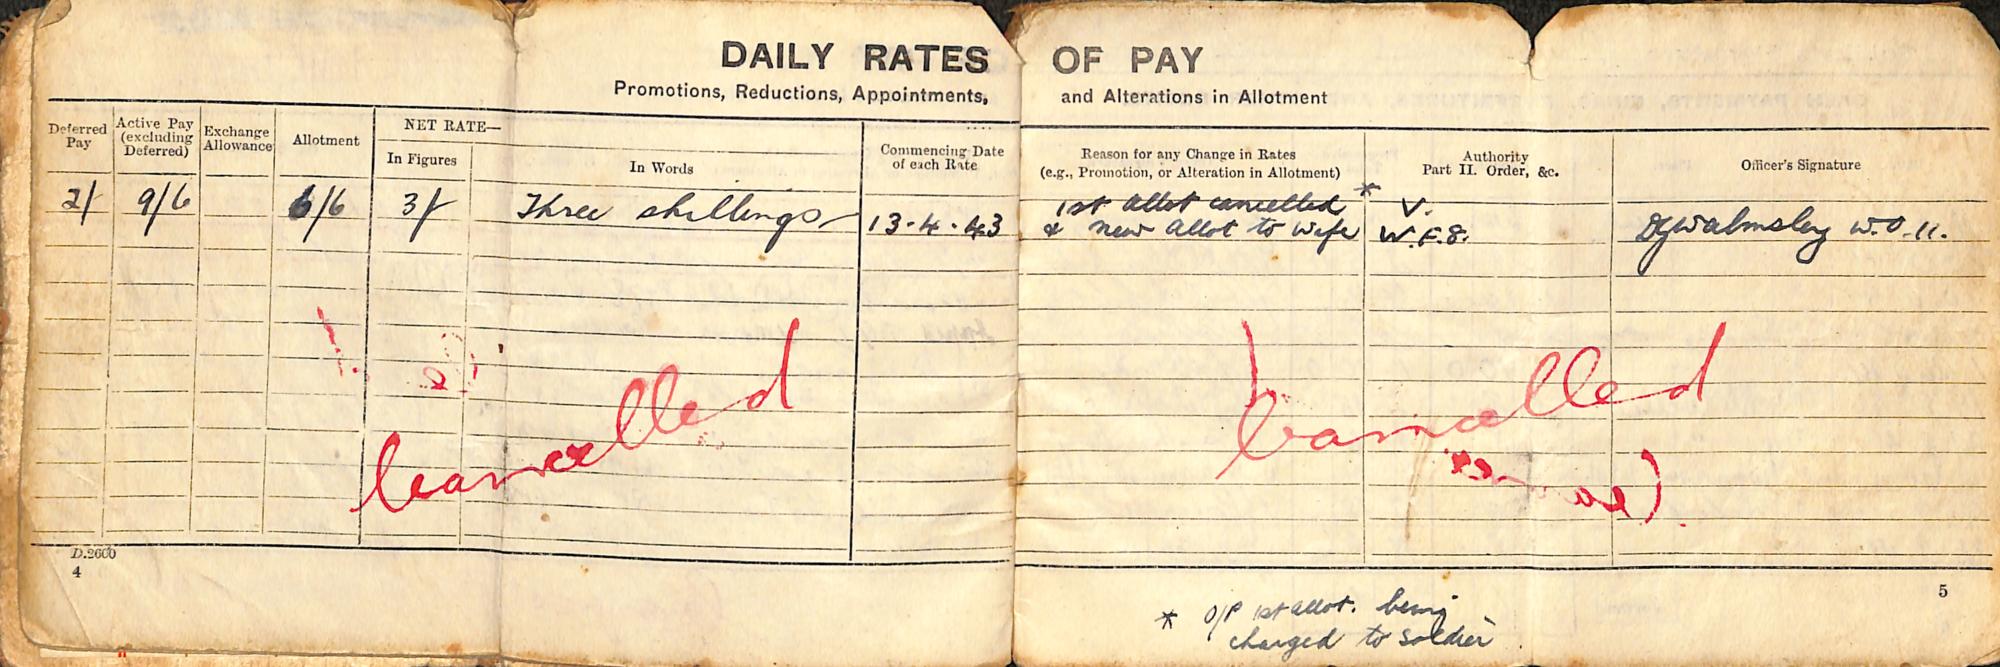 DAILY RATES OF PAY
Promotions, Reductions, Appointments, and Alterations in Allotment
Deferred Pay
Active Pay (excluding Deferred)
Exchange Allowance
Allotment
NET RATE—
In Figures
In Words
Commencing Date of each Rate
Reason for any Change in Rates (e.g., Promotion, or Alteration in Allotment)
Authority Part II. Order, &c.
Officer's Signature
2/ 9/6 6/6 3/ Three shillings 13.4.43
1st allot cancelled *
& new allot to wife
V.
W.F.8.
DJWalmsley W.O.II.
Cancelled
Cancelled
D.2600
4
5
* O/P 1st allot. being
charged to soldier